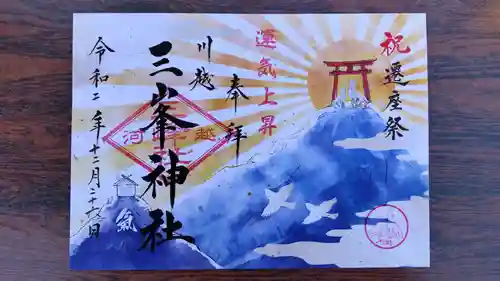 祝
遷座祭
運気上昇
奉拝
川越
三峯神社
令和二年十二月二十六日
氣